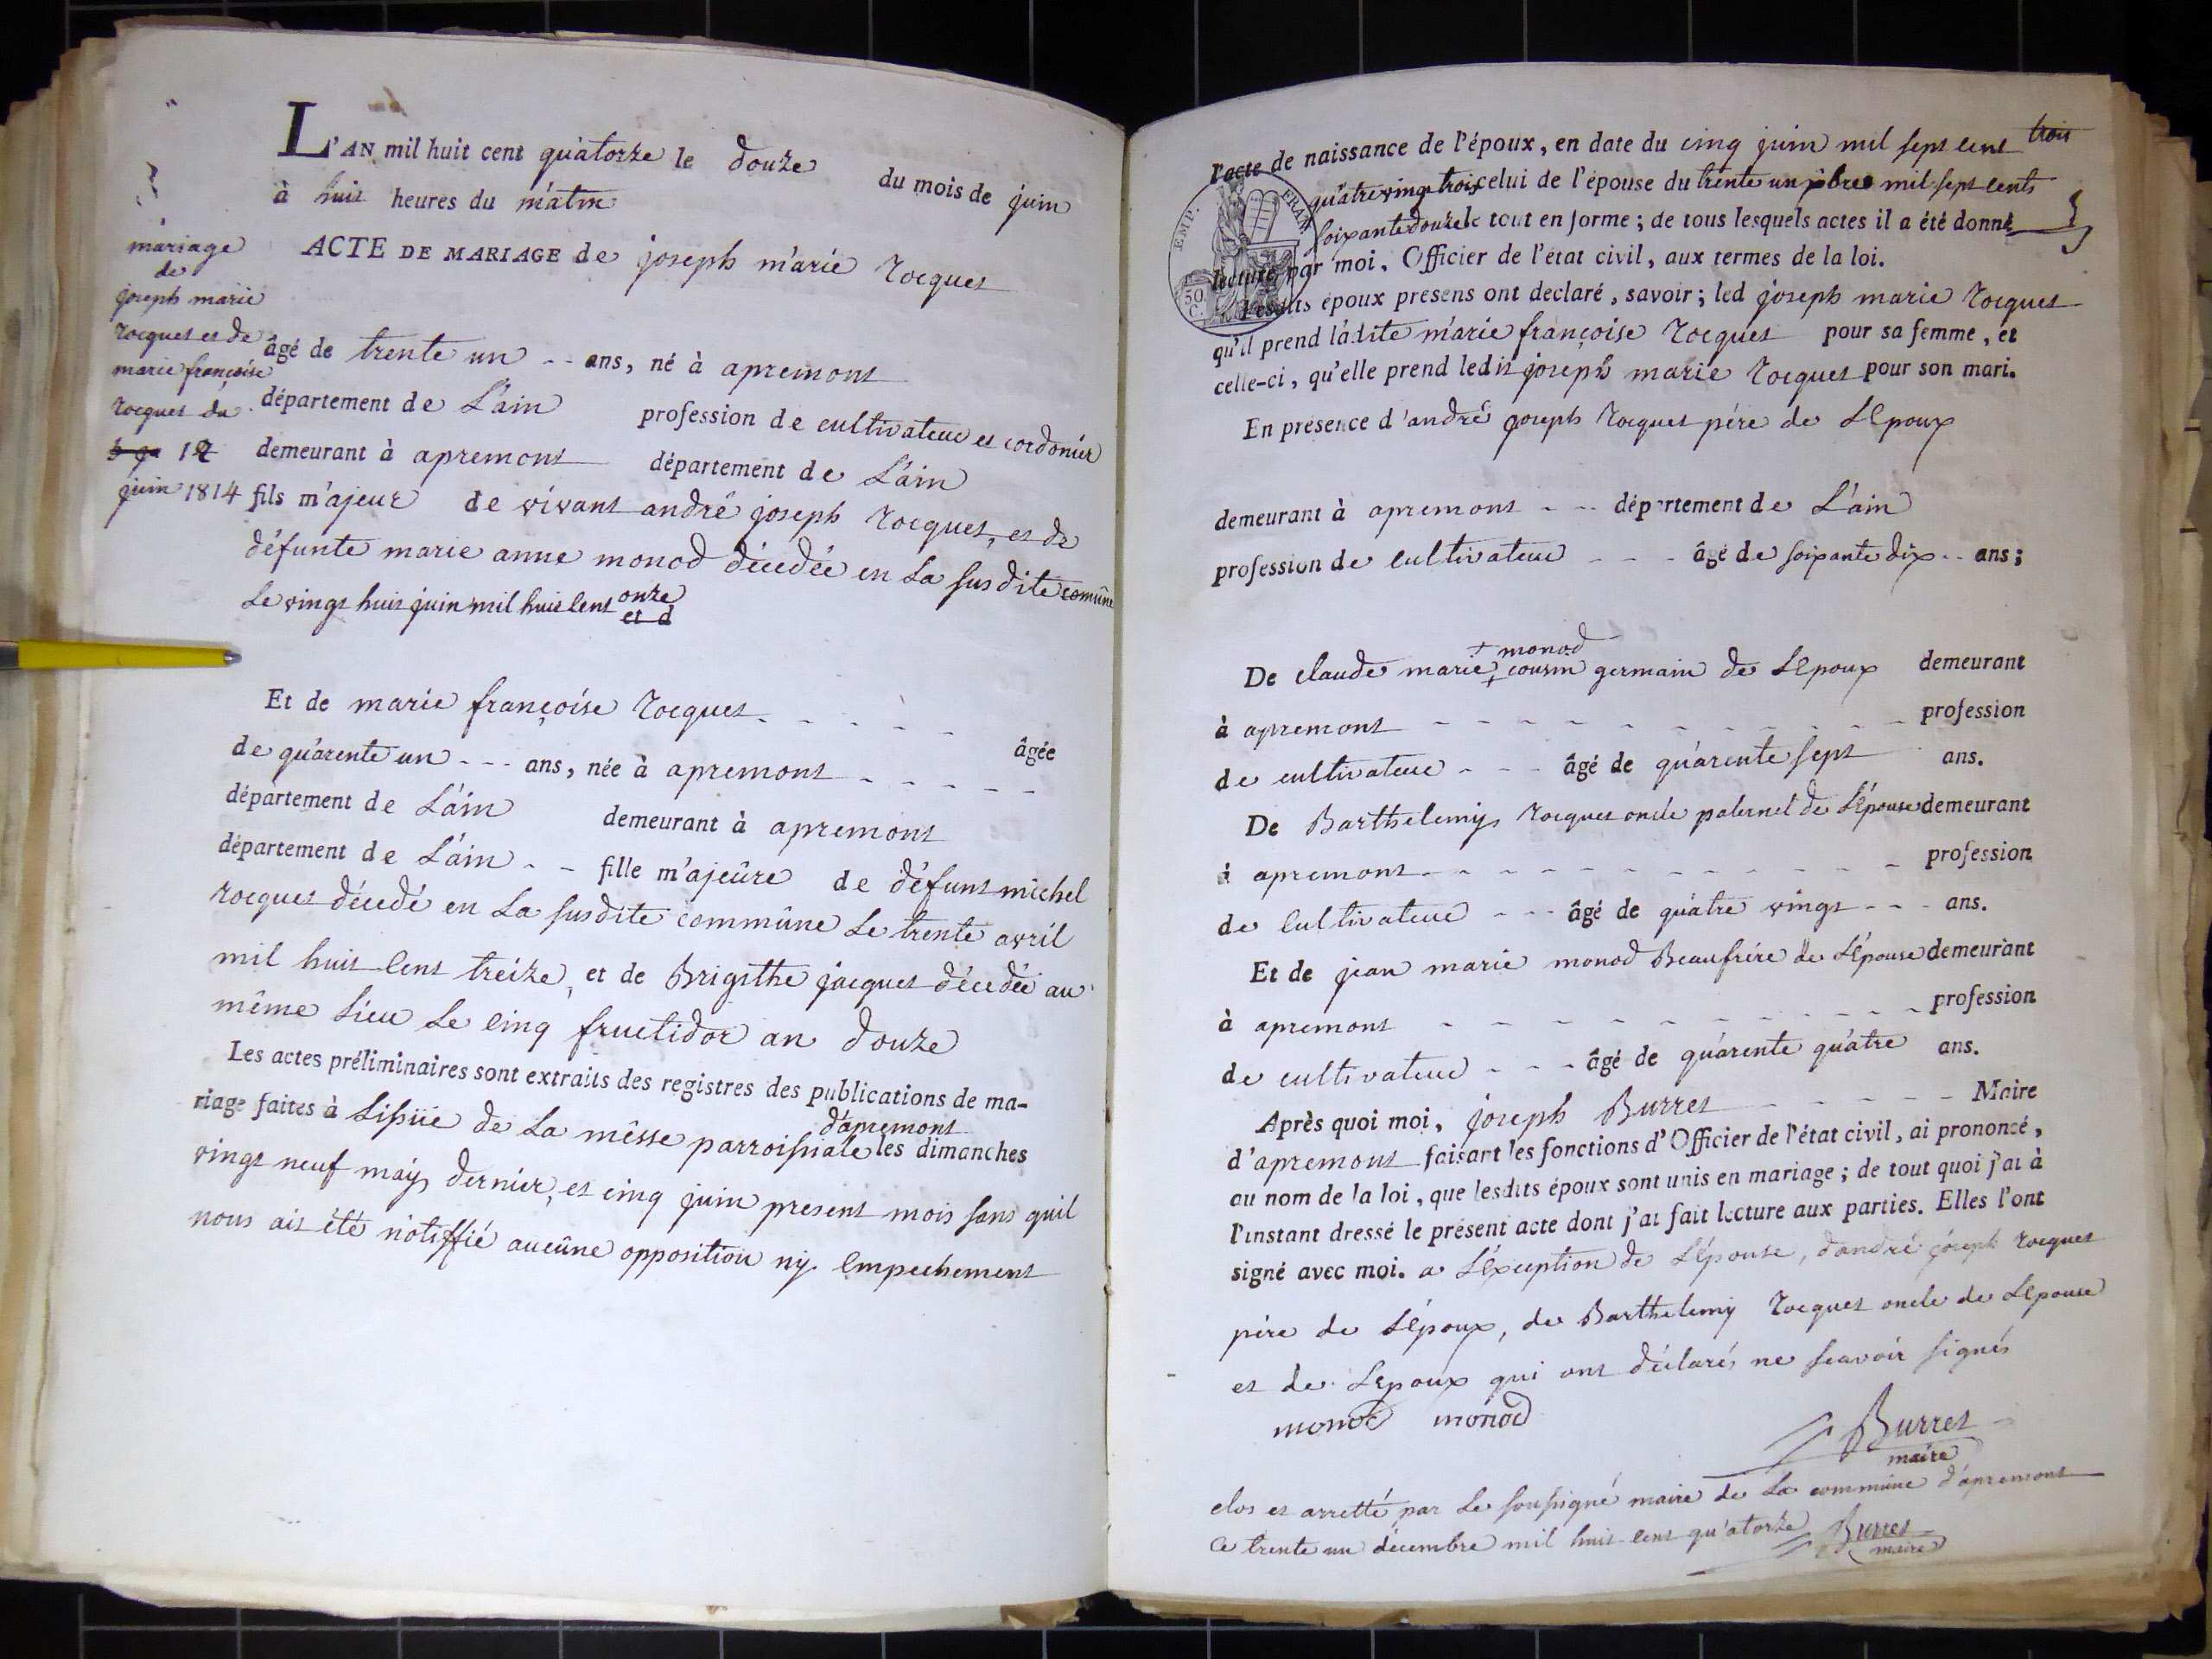 L'AN mil huit cent quatorze le douze du mois de juin
à huit heures du matin
ACTE DE MARIAGE de joseph marie Rocquet
mariage
de
joseph marie
Rocquet et de
marie françoise
Rocquet du
12
juin 1814
âgé de trente un -- ans, né à apremont
département de L'ain profession de cultivateur et cordonier
demeurant à apremont département de L'ain
fils majeur de vivant andré joseph Rocquet, et de
défunte marie anne monod décedée en La susdite comûne
Le vingt huit juin mil huit Cent onze
et d
Et de marie françoise Rocquet - - - - - âgée
de quarente un --- ans, née à apremont - - - - -
département de L'ain demeurant à apremont
département de L'ain - - fille majeûre de défunt michel
Rocquet décedé en La susdite commûne Le trente avril
mil huit Cent treize, et de Brigitthe jacquet décedée au
même Lieu Le cinq fructidor an douze
Les actes préliminaires sont extraits des registres des publications de ma-
riage faites à Lissüe de La mêsse parroissiale d'apremont les dimanches
vingt neuf may dernier, et cinq juin present mois sans quil
nous ait été notiffié aucûne opposition ny Empechement
l'acte de naissance de l'époux, en date du cinq juin mil sept cent trois
quatre vingt trois celui de l'épouse du trente un xbre mil sept cents
soixante douze le tout en forme; de tous lesquels actes il a été donné
lecture par moi, Officier de l'état civil, aux termes de la loi.
EMP. FRAN.
50 C.
Lesdits époux présens ont déclaré, savoir; led joseph marie Rocquet
qu'il prend ladite marie françoise Rocquet pour sa femme, et
celle-ci, qu'elle prend ledit joseph marie Rocquet pour son mari.
En présence d'andré joseph Rocquet pére de LEpoux
demeurant à apremont - -- département de L'ain
profession de cultivateur - - - âgé de soixante dix -- ans;
+ monod
De claude marie + cousin germain de LEpoux demeurant
à apremont - - - - - - - - - - profession
de cultivateur - - - âgé de quarente sept ans.
De Barthelemy Rocquet oncle paternel de L'épouse demeurant
à apremont - - - - - - - - - - profession
de Cultivateur - - - âgé de quatre vingt - - - ans.
Et de jean marie monod Beaufrére de L'épouse demeurant
à apremont - - - - - - - - - - profession
de cultivateur - - - âgé de quarente quatre ans.
Après quoi moi, joseph Burret - - - - - Maire
d'apremont faisant les fonctions d'Officier de l'état civil, ai prononcé,
au nom de la loi, que lesdits époux sont unis en mariage; de tout quoi j'ai à
l'instant dressé le présent acte dont j'ai fait lecture aux parties. Elles l'ont
signé avec moi. a L'éxception de L'épouse, d'andré joseph Rocquet
pére de L'époux, de Barthelemy Rocquet oncle de LEpouse
et de LEpoux qui ont déclarés ne scavoir signés
monod monod
Burret
maire
clos et arretté par Le soussigné maire de La commûne d'apremont
Ce trente un décembre mil huit cent quatorze Burret
maire